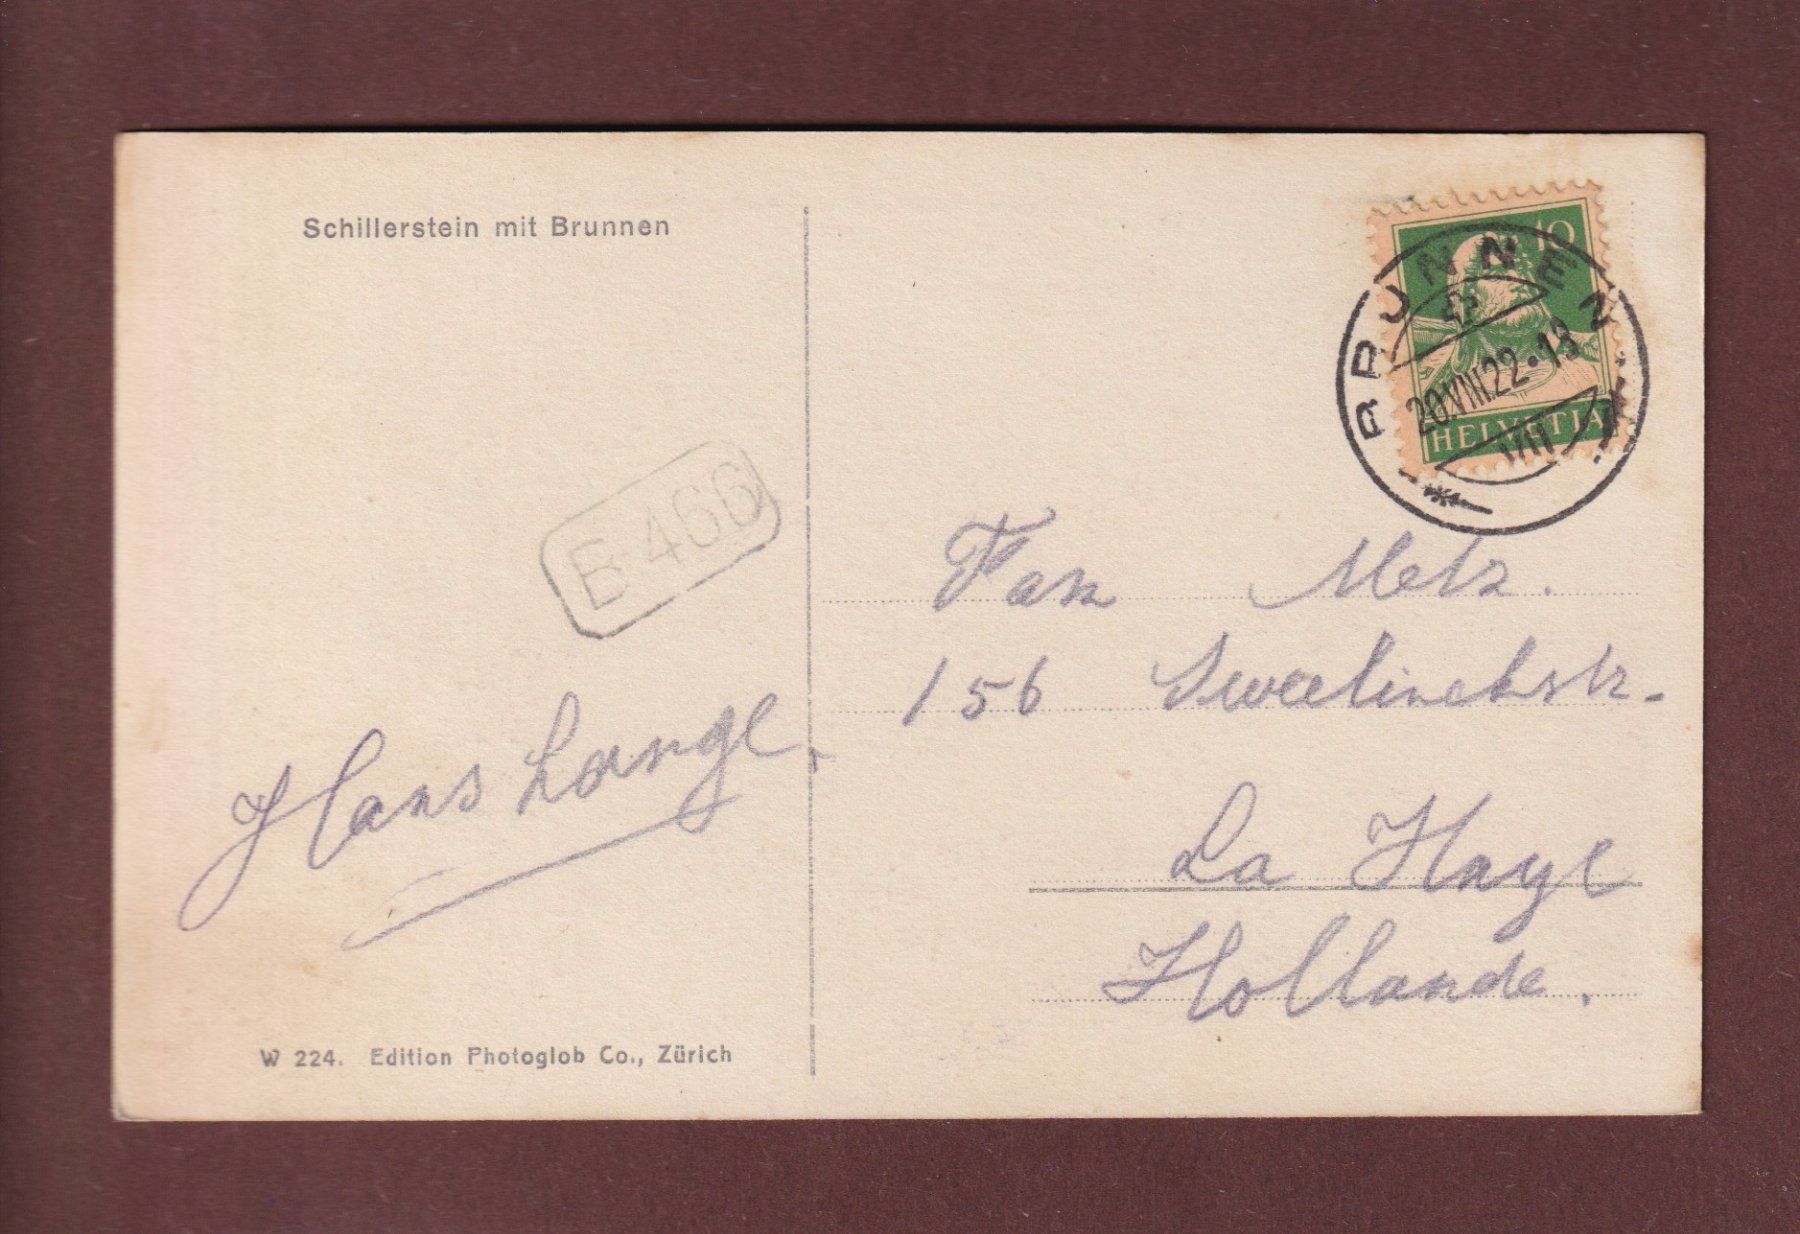 Schillerstein mit Brunnen
10
BRUNNEN
20.VIII.22·18
VII
HELVETIA
B 466
Fam Metz.
156 Sweelinckstr.
Hans Lange.
La Haye
Hollande.
W 224. Edition Photoglob Co., Zürich